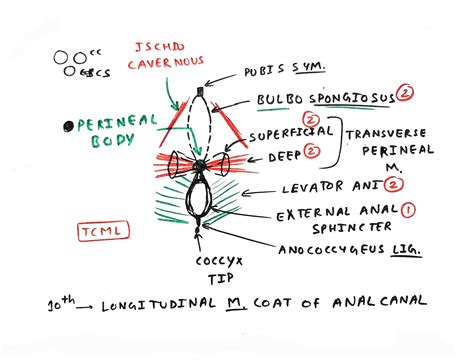 CC
CS
ISCHIO
CAVERNOUS
PUBIS SYM.
BULBO SPONGIOSUS 2
PERINEAL
BODY
2
SUPERFICIAL
DEEP 2
TRANSVERSE
PERINEAL
M.
LEVATOR ANI 2
EXTERNAL ANAL 1
SPHINCTER
TCML
ANOCOCCYGEUS LIG.
COCCYX
TIP
10th → LONGITUDINAL M. COAT OF ANAL CANAL